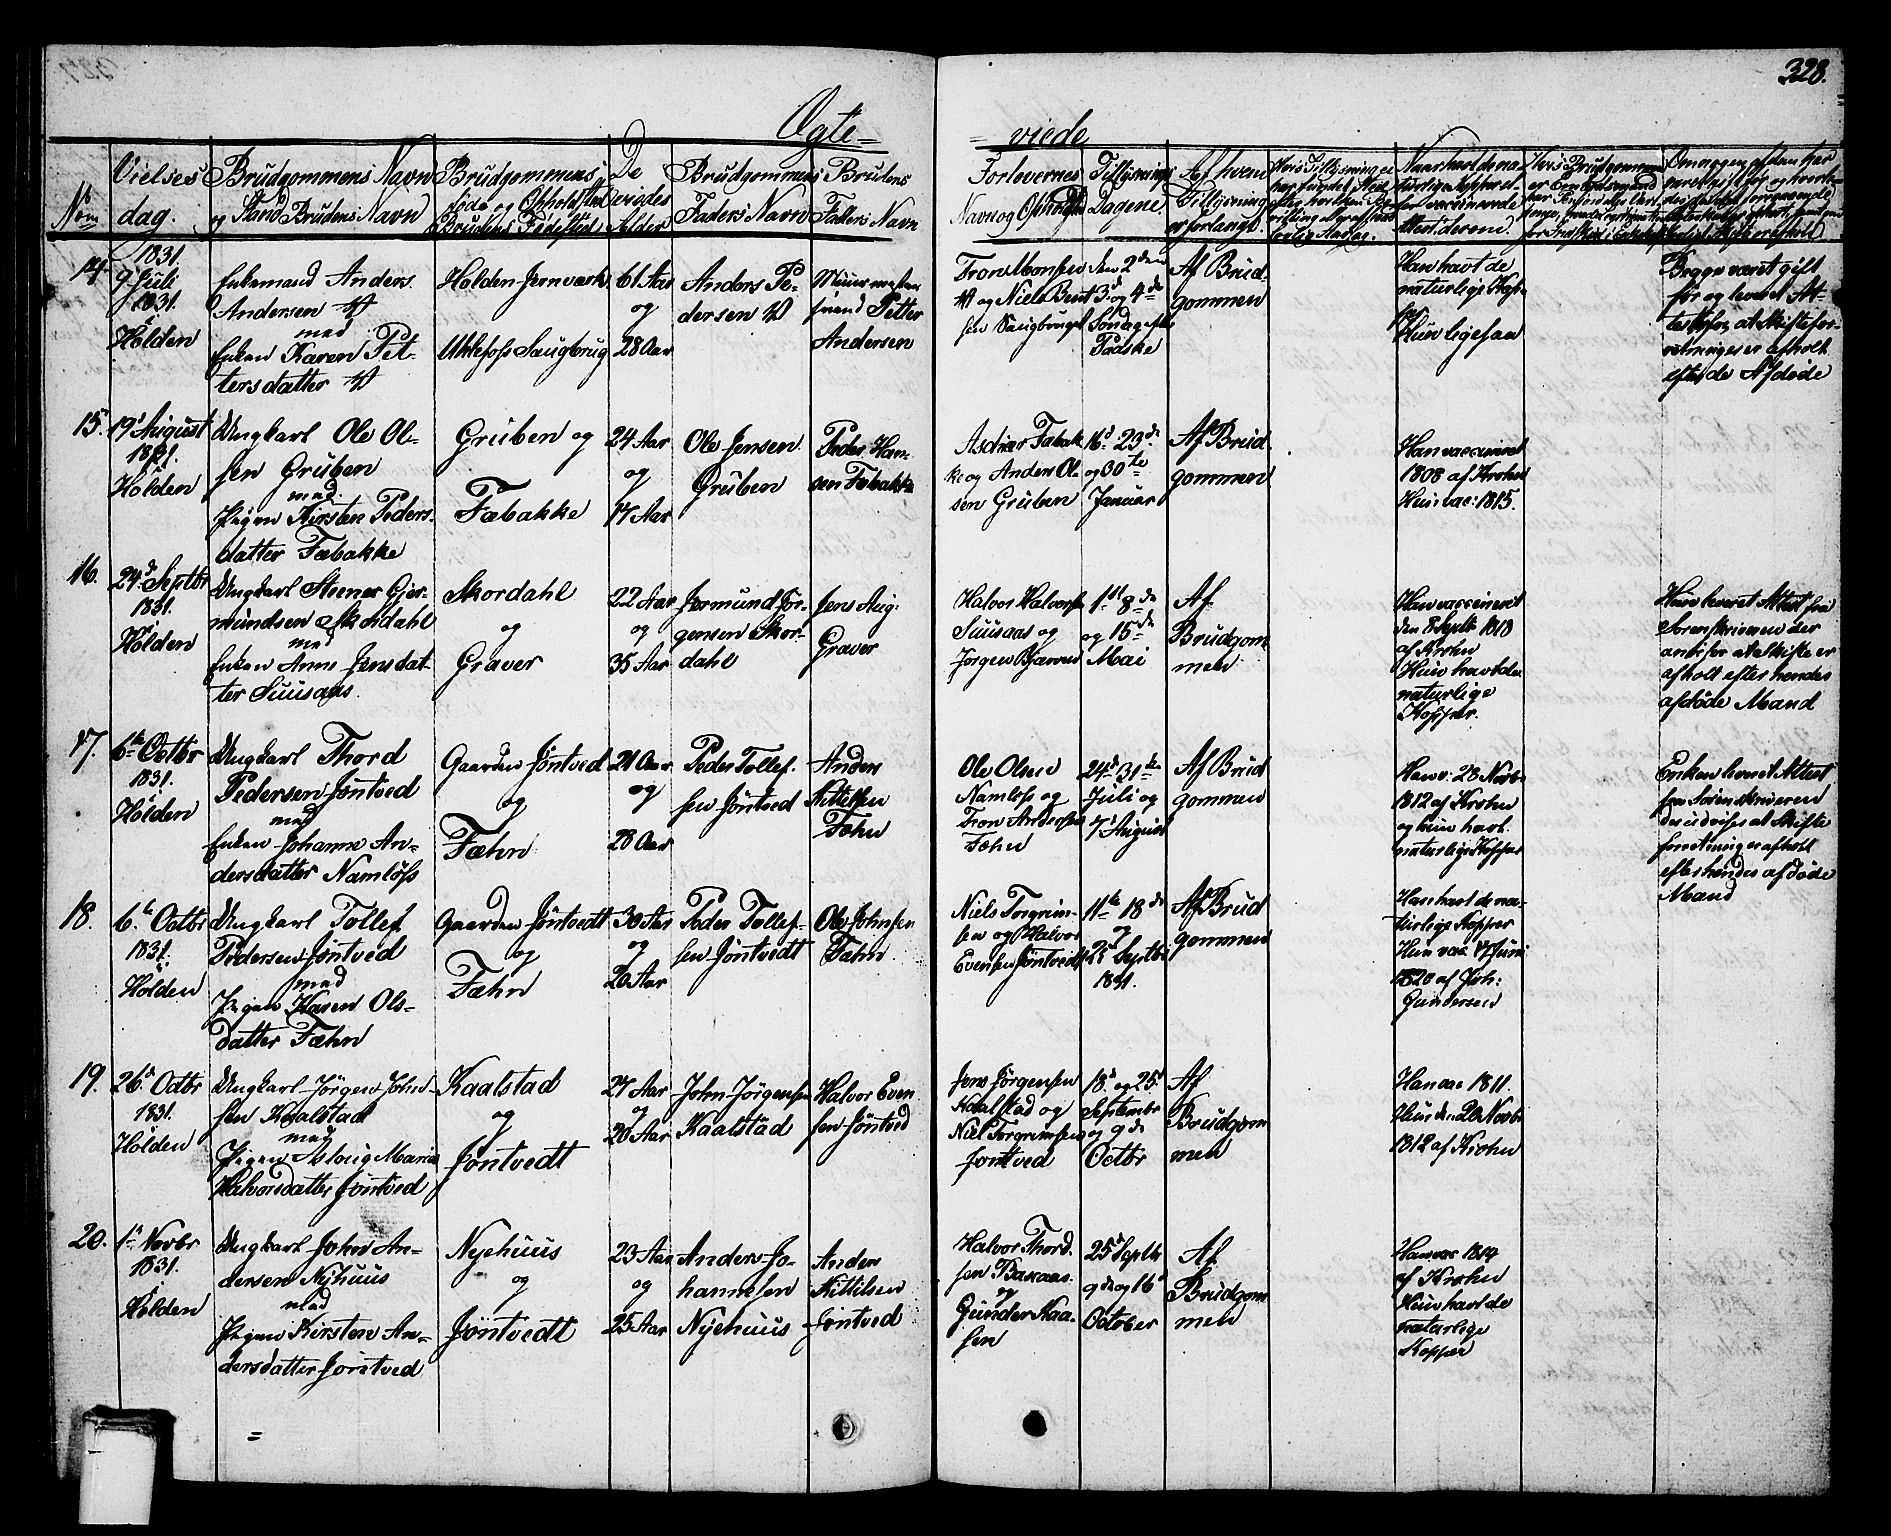 328.
Ægte= =viede
No
Vielses
dag.
Brudgommens Navn
og Stand Brudens Navn
Brudgommens
føde og Opholdsted
Brudens Fødested
De
viedes
Alder
Brudgommens
Faders Navn
Brudens
Faders Navn
Forlovernes
Navn og Opholdsted
Tillysnings
Dagene.
Af hvem
Tillysning
er forlangt.
14.
1831.
9 Juli
1831.
i
Holden
Enkemand Anders
Andersen
med
Enken Karen Pet-
tersdatter
Holden Jernværk
Ulefoss Saugbrug
61 Aar
og
28 Aar
Anders Pe-
dersen
Muurmester
svend Petter
Andersen
Tron Monsen
og Niels Bent
sen Saugbruget
den 2den
3d og 4de
Søndag efter
Paaske
Af Brud-
gommen
Han havt de
naturlige Kop-
per
Hun ligesaa
Begge været gift
før og leveret At-
test for, at Skiftefor-
retninger er afholt
efter de Afdøde
15.
19d August
1831.
i
Holden
Ungkarl Ole Ol-
sen Gruben
med
Pigen Kirsten Peders-
datter Fæbakke
Gruben og
Fæbakke
24 Aar
og
17 Aar
Ole Jensen
Gruben
Peder Han-
sen Fæbakke
Aslak Fæbak-
ke og Anders Ol-
sen Gruben
16d 23de
og 30te
Januar
Af Brud-
gommen
Han vaccineret
1808 af Krohn
Hun vac: 1815.
16.
24d Septbr
1831.
i
Holden
Ungkarl Stener Gjer-
mundsen Skordahl
med
Enken Anne Jensdat-
ter Suusaas
Skordahl
og
Graver
22 Aar
og
35 Aar
Jermund Jør-
gensen Skor-
dahl
Jens Aug:
Graver
Halvor Halvorsen
Suusaas og
Jørgen Bjarven
1ste 8de
og 15de
Mai
Af
Brudgom
men
Han vaccineret
den 8 Septb 1810
af Krohn
Hun havt de
naturlige
Kopper.
Hun leveret Attest fra
Sorenskriveren der
anfør at Skifte er
afholt efter hendes
afdøde Mand
17.
6te Octbr
1831.
i
Holden
Ungkarl Thord
Pedersen Jøntved
med
Enken Johanne An-
dersdatter Namløss
Gaarden Jøntved
og
Fæhn
21 Aar
og
28 Aar
Peder Tollef-
sen Jøntved
Anders
Kittilsen
Fæhn
Ole Olsen
Namløss og
Tron Andersen
Fæhn
24d 31te
Juli og
7d August
Af Brud
gommen
Han v: 28 Novbr
1812 af Krohn
og hun havt
naturlige Kopper
Enken leveret Attest
fra Sorenskriveren
der udvises at Skifte
forretning er afholt
efter hendes afdøde
Mand
18.
6te Octbr
1831.
i
Holden
Ungkarl Tollef
Pedersen Jøntved
med
Pigen Karen Ols-
datter Fæhn
Gaarden Jøntvedt
og
Fæhn
30 Aar
og
20 Aar
Peder Tollef-
sen Jøntvedt
Ole Johnsen
Fæhn
Niels Torgrim-
sen og Halvor
Evensen Jøntvedt
11te 18de
og
25d Septbr
1831.
Af Brud
gommen
Han havt de na-
turlige Kopper
Hun vac 17 Juni
1820 af Joh:
Gundersen
19.
26d Octbr
1831.
i
Holden
Ungkarl Jørgen John-
sen Kaalstad
med
Pigen Aslaug Maria
Halvorsdatter Jøntved
Kaalstad
og
Jøntvedt
27 Aar
og
20 Aar
John Jørgensen
Kaalstad
Halvor Even
sen Jøntved
Jens Jørgensen
Kaalstad og
Niel Torgrimsen
Jøntved
18d og 25d
Septembr
og 9de
Octbr
Af
Brudgom
men
Han vac 1811.
Hun den 28 Novbr
1812 af Krohn
20.
1te Novbr
1831.
i
Holden
Ungkarl John An-
dersen Nyhuus
med
Pigen Kirsten An-
dersdatter Jøntved
Nyehuus
og
Jøntvedt
23 Aar
og
25 Aar
Anders Jo-
hannesen
Nyehuus
Anders
Kittilsen
Jøntved
Halvor Thord-
sen Baxaas
og
Gunder Kaa-
sen
25d Septbr
9de og 16d
October
Af
Brudgom
men
Han vac 1814
af Krohn
Hun havt de
naturlige
Kopper
=